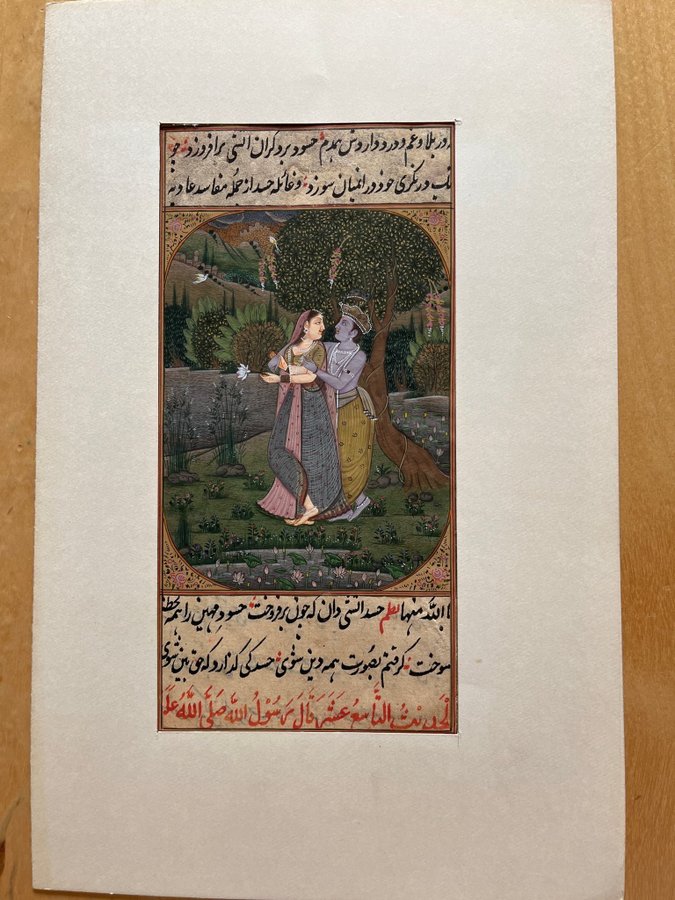 در بلا و غم و درد و داروش همدم حسود بر دکران اتشی برافروزد جو
در خود در انمیان سوزد و غائله حسد از جمله مفاسد عاد به
الله منها نظم حسد اتشی دان که چون برفروخت حسود مهین را همه
سوخت کرفتم بصورت همه دین شوی حسد کی کذارد که حق بین شوی
الحدیث التاسع عشر قال رسول الله صلی الله علی